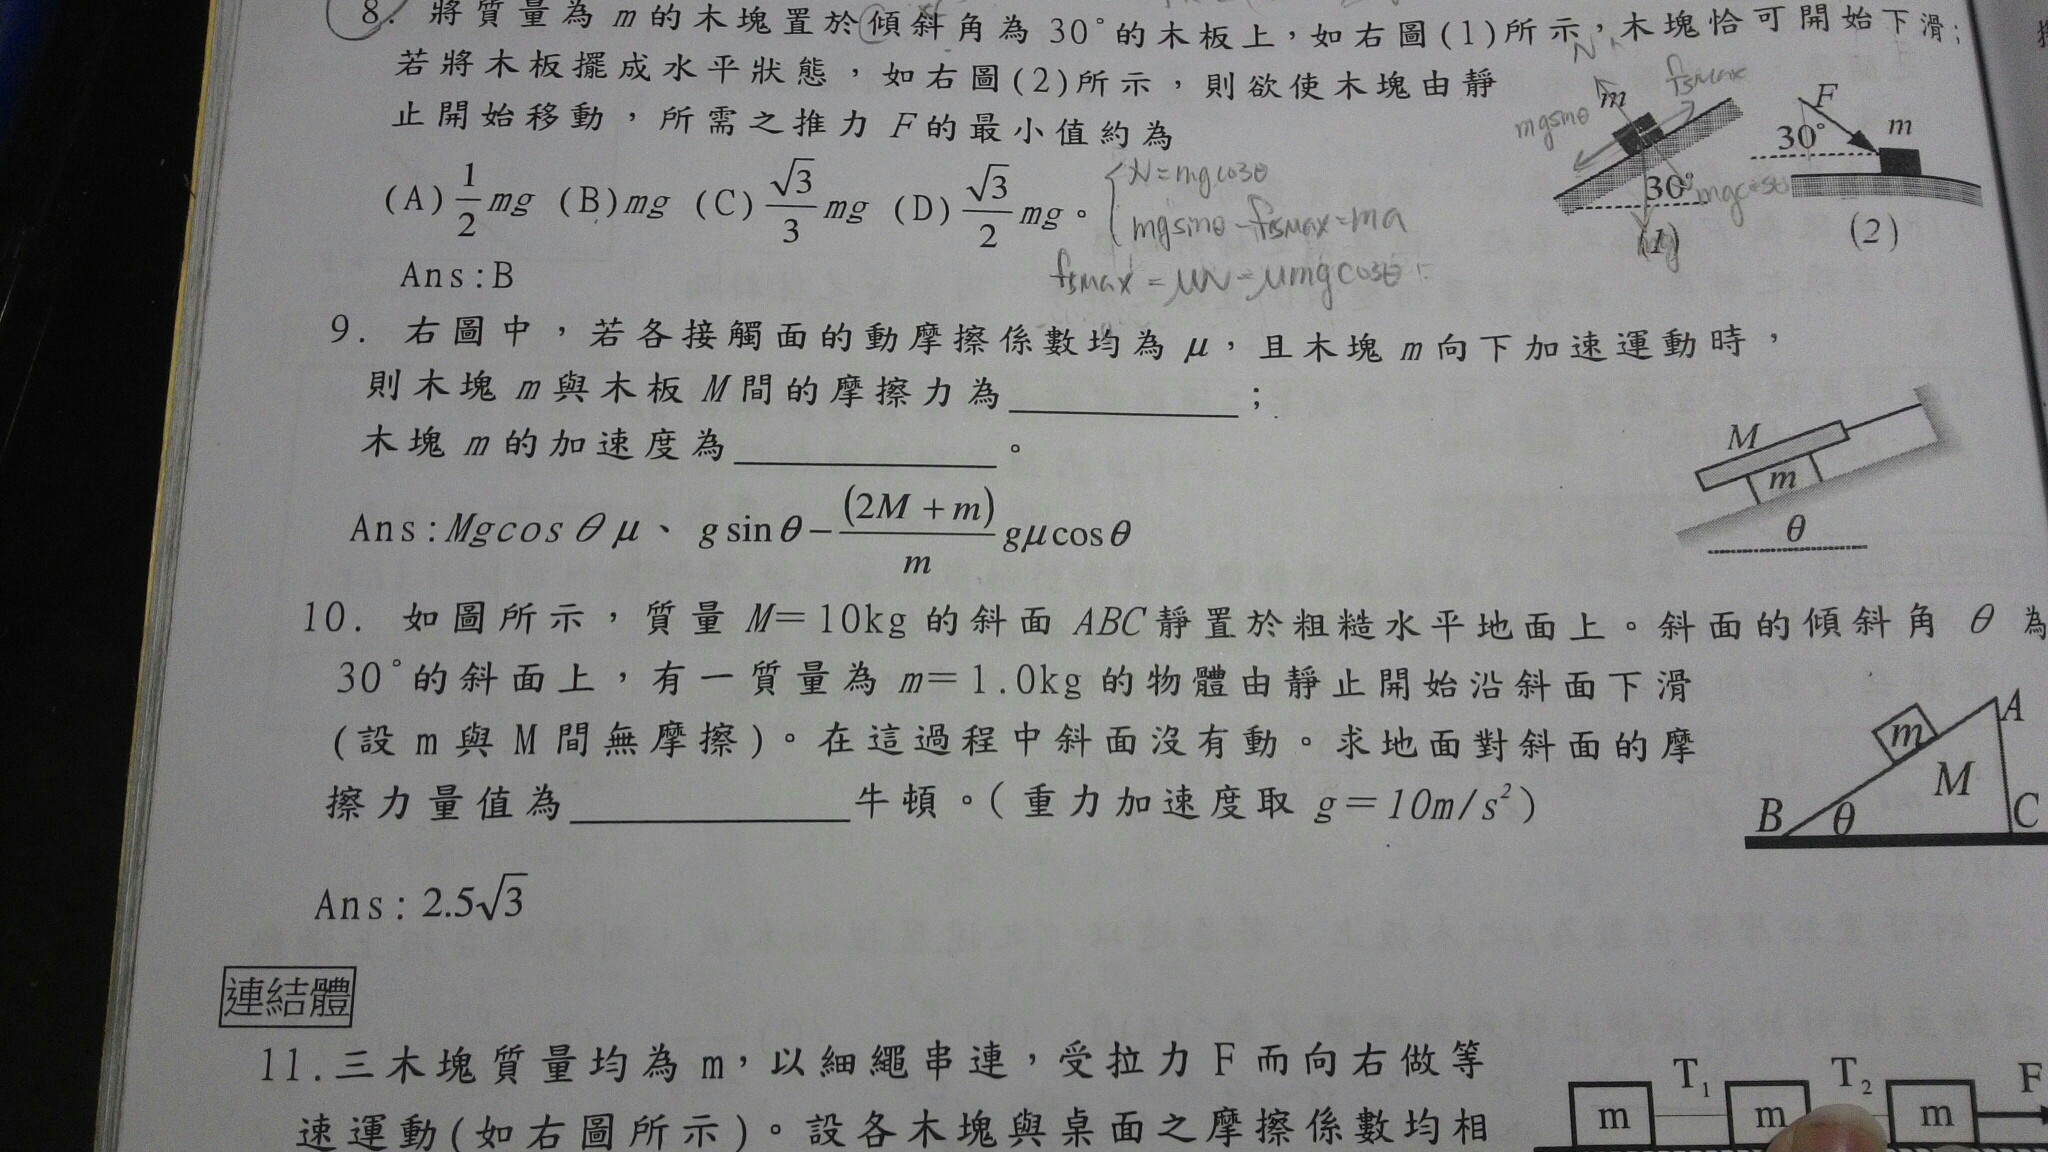 8. 將質量為 m 的木塊置於傾斜角為 30°的木板上，如右圖(1)所示，木塊恰可開始下滑；
若將木板擺成水平狀態，如右圖(2)所示，則欲使木塊由靜
止開始移動，所需之推力 F 的最小值約為
(A) 1/2 mg (B) mg (C) √3/3 mg (D) √3/2 mg。
N = mg cosθ
mg sinθ - fsmax = ma
fsmax = μN = μmg cosθ
Ans:B
N
fsmax
m
mg sinθ
30°
mg cosθ
mg
(1)
F
30°
m
(2)
9. 右圖中，若各接觸面的動摩擦係數均為 μ，且木塊 m 向下加速運動時，
則木塊 m 與木板 M 間的摩擦力為＿＿＿＿＿；
木塊 m 的加速度為＿＿＿＿＿。
Ans:Mgcosθμ、 g sinθ − (2M + m)/m gμ cosθ
M
m
θ
10. 如圖所示，質量 M=10kg 的斜面 ABC 靜置於粗糙水平地面上。斜面的傾斜角 θ 為
30°的斜面上，有一質量為 m=1.0kg 的物體由靜止開始沿斜面下滑
(設 m 與 M 間無摩擦)。在這過程中斜面沒有動。求地面對斜面的摩
擦力量值為＿＿＿＿＿牛頓。(重力加速度取 g=10m/s²)
A
m
M
B
θ
C
Ans: 2.5√3
連結體
11.三木塊質量均為 m，以細繩串連，受拉力 F 而向右做等
速運動(如右圖所示)。設各木塊與桌面之摩擦係數均相
T₁
T₂
F
m
m
m